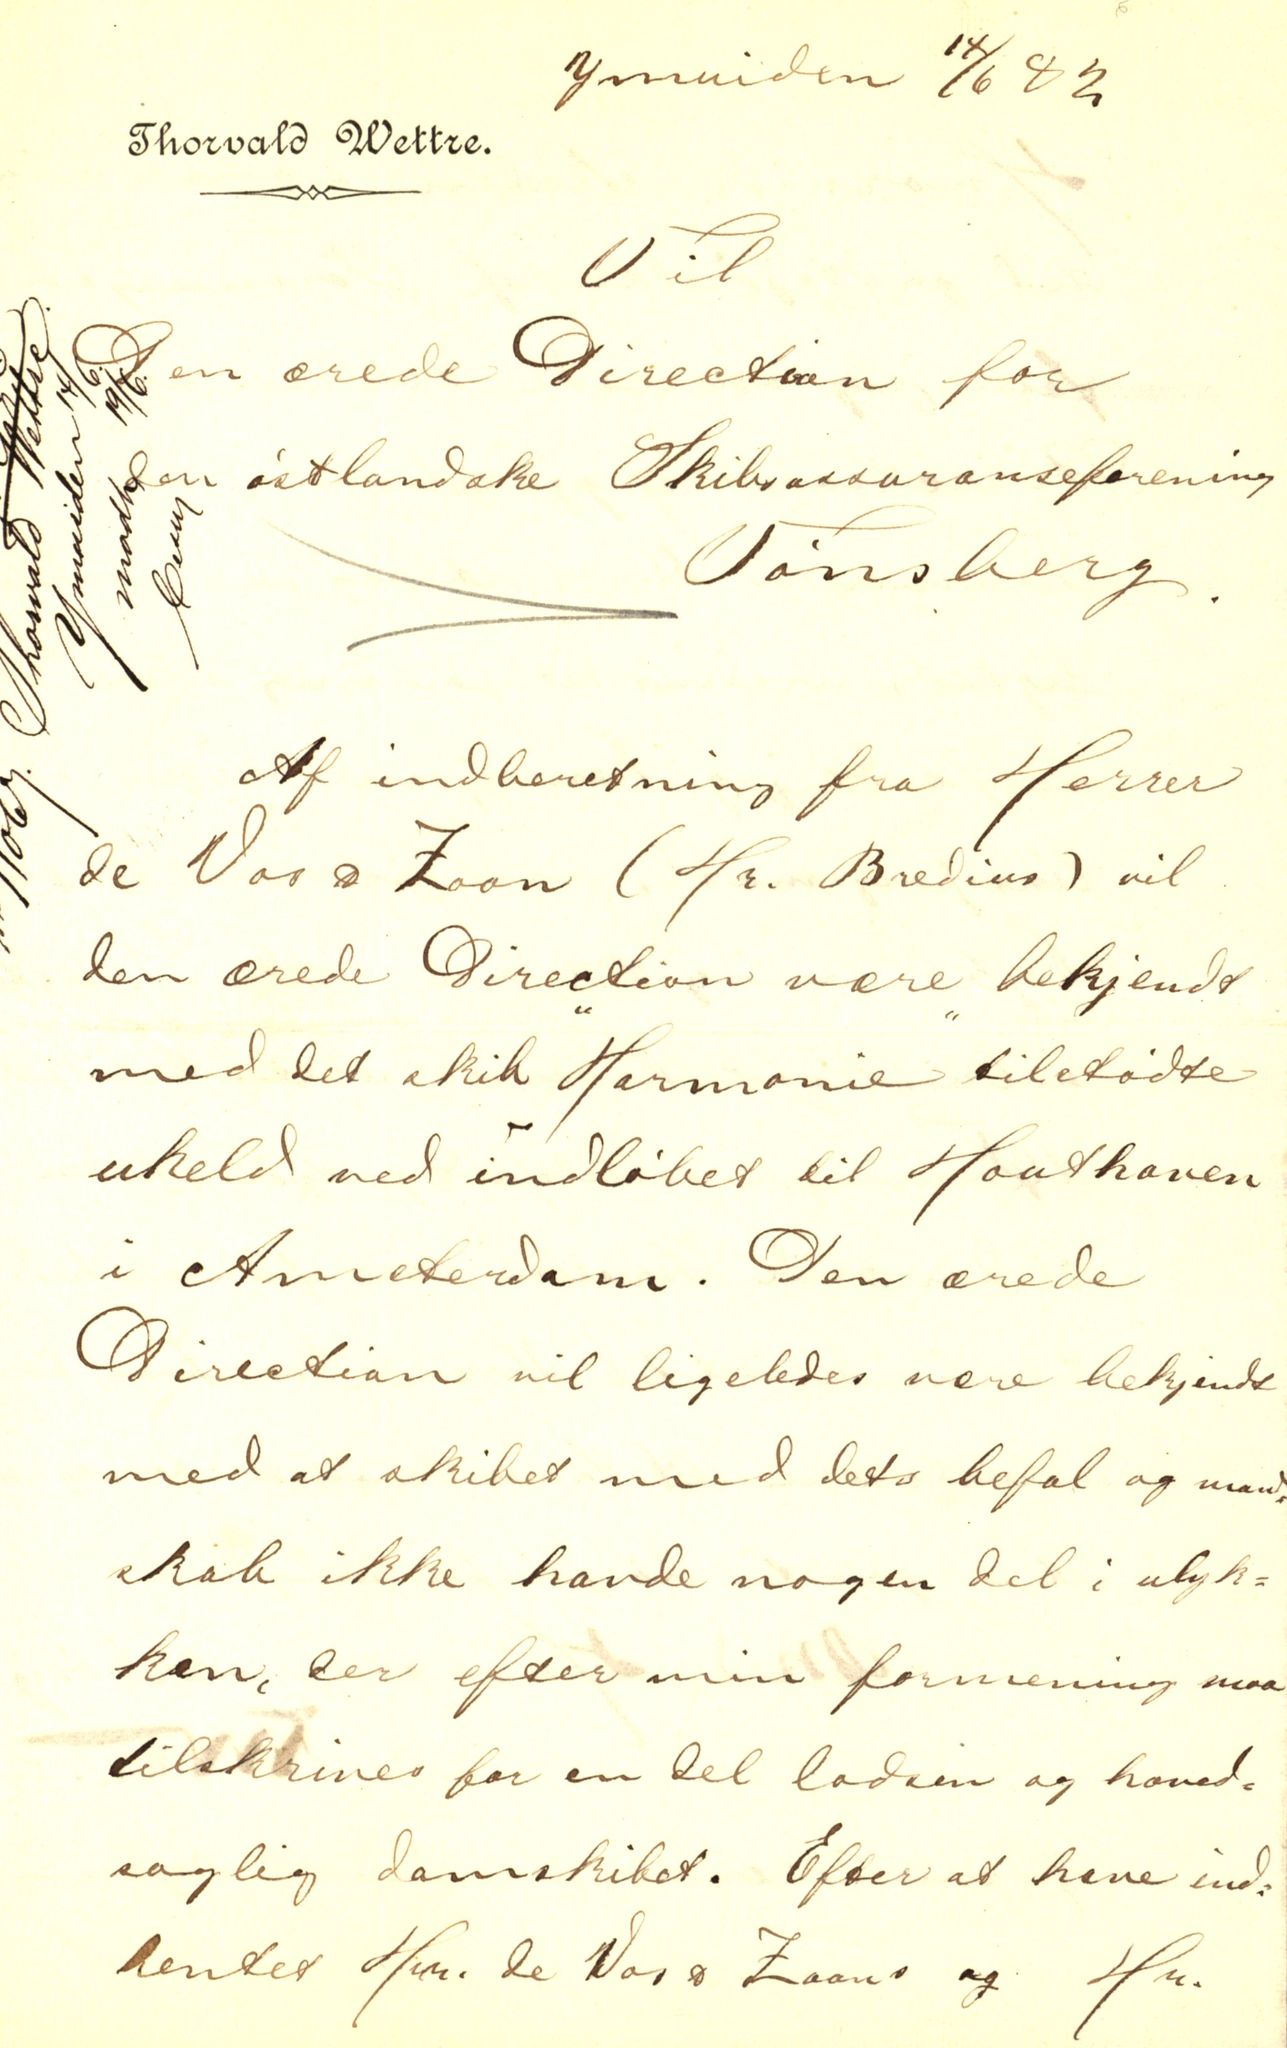 Ymuiden 14/6 82
Thorvald Wettre.
Til
Den ærede Direction for
den östlandske Skibsassuranseforening
Tönsberg.
Thorvald Wettre
Ymuiden 14/6
modt. 19/6.
Af indberetning fra Herrer
de Vos & Zoon (Hr. Bredius) vil
den ærede Direction være bekjendt
med det skib "Harmonie" tilstödte
uheld ved indlöbet til Houthaven
i Amsterdam. Den ærede
Direction vil ligeledes være bekjendt
med at skibet med dets befal og mand=
skab ikke havde nogen del i ulyk=
ken, der efter min formening maa
tilskrives for en del lodsen og hoved=
saglig damskibet. Efter at have ind=
hentet Hrr. de Vos & Zoons og Hr.